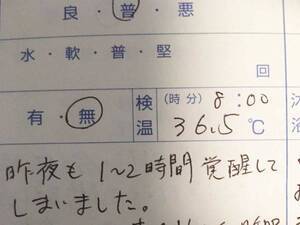 良・普・悪
水・軟・普・堅
回
有・無 検温 (時分) 8:00
36.5℃
昨夜も1〜2時間覚醒して
しまいました。